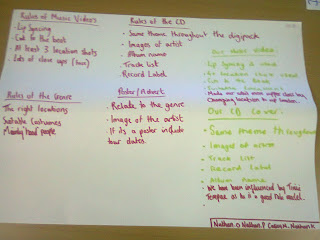 Rules of Music Videos
· Lip Syncing
· Cut to the beat
· At least 3 location shots
· Lots of close ups
Rules of the Genre
The right locations
Suitable Costumes
Moody hood people
Rules of the CD
· Same theme throughout the digipack
· Images of artist
· Album name
· Track list
· Record Label
Poster / Advert
· Relate to the genre
· Image of the artist
· If its a poster include
tour dates.
Our video:
Lip Syncing
Cut to the Beat
Changing location to
Our CD Cover:
Same theme throughout
Images of artist
Track List
Record Label
Album name
· We have been influenced by Tinie
Tempah as he is a good role model.
Nathan O Nathan P Nathan K